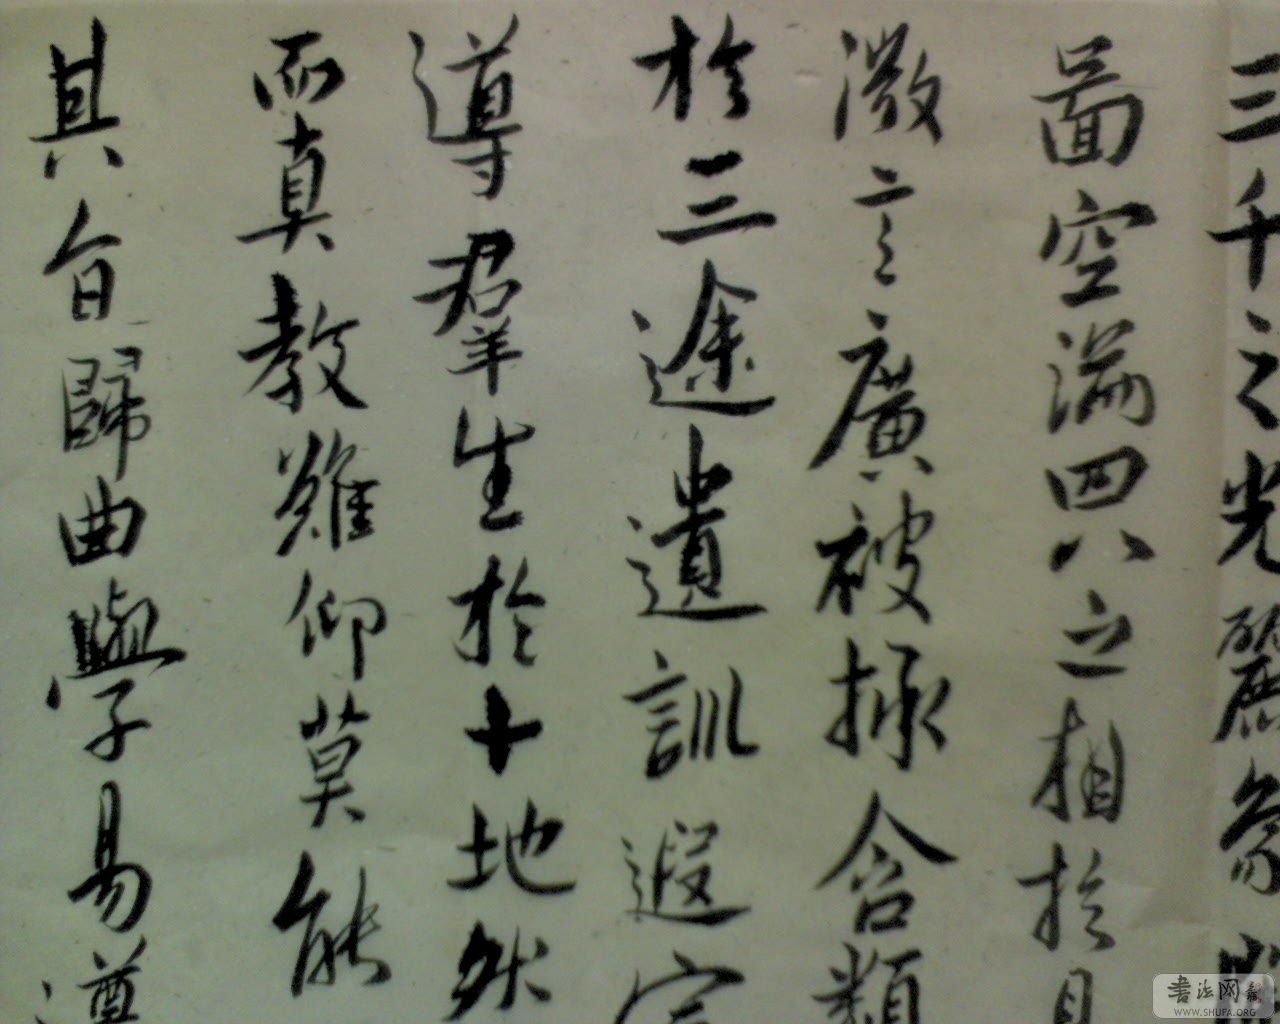 三千之光麗象開
啚空端四八之相於是
微言廣被拯含類
於三途遺訓遐宣
導羣生於十地然
而真教難仰莫能
其旨歸曲學易遵
书法网
WWW.SHUFA.ORG